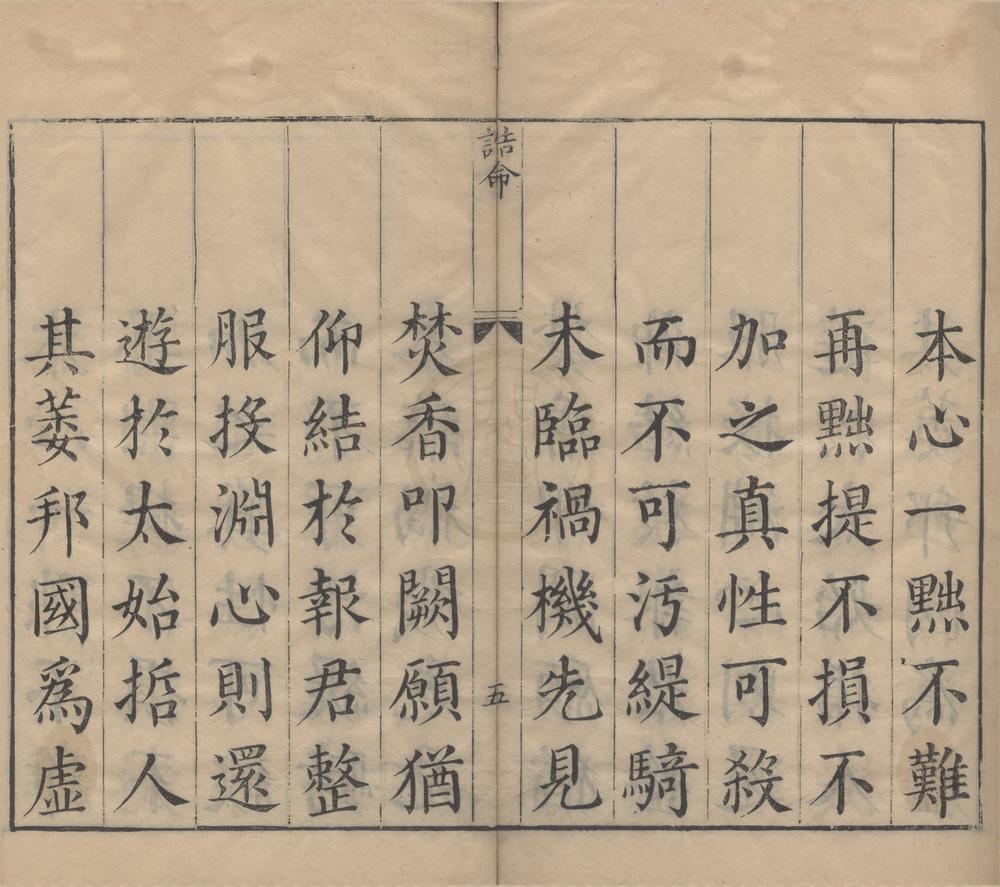 本心一黜不難
再黜提不損不
加之真性可殺
而不可汚緹騎
未臨禍機先見
誥命
五
焚香叩闕願猶
仰結於報君整
服投淵心則還
遊於太始哲人
其萎邦國爲虛